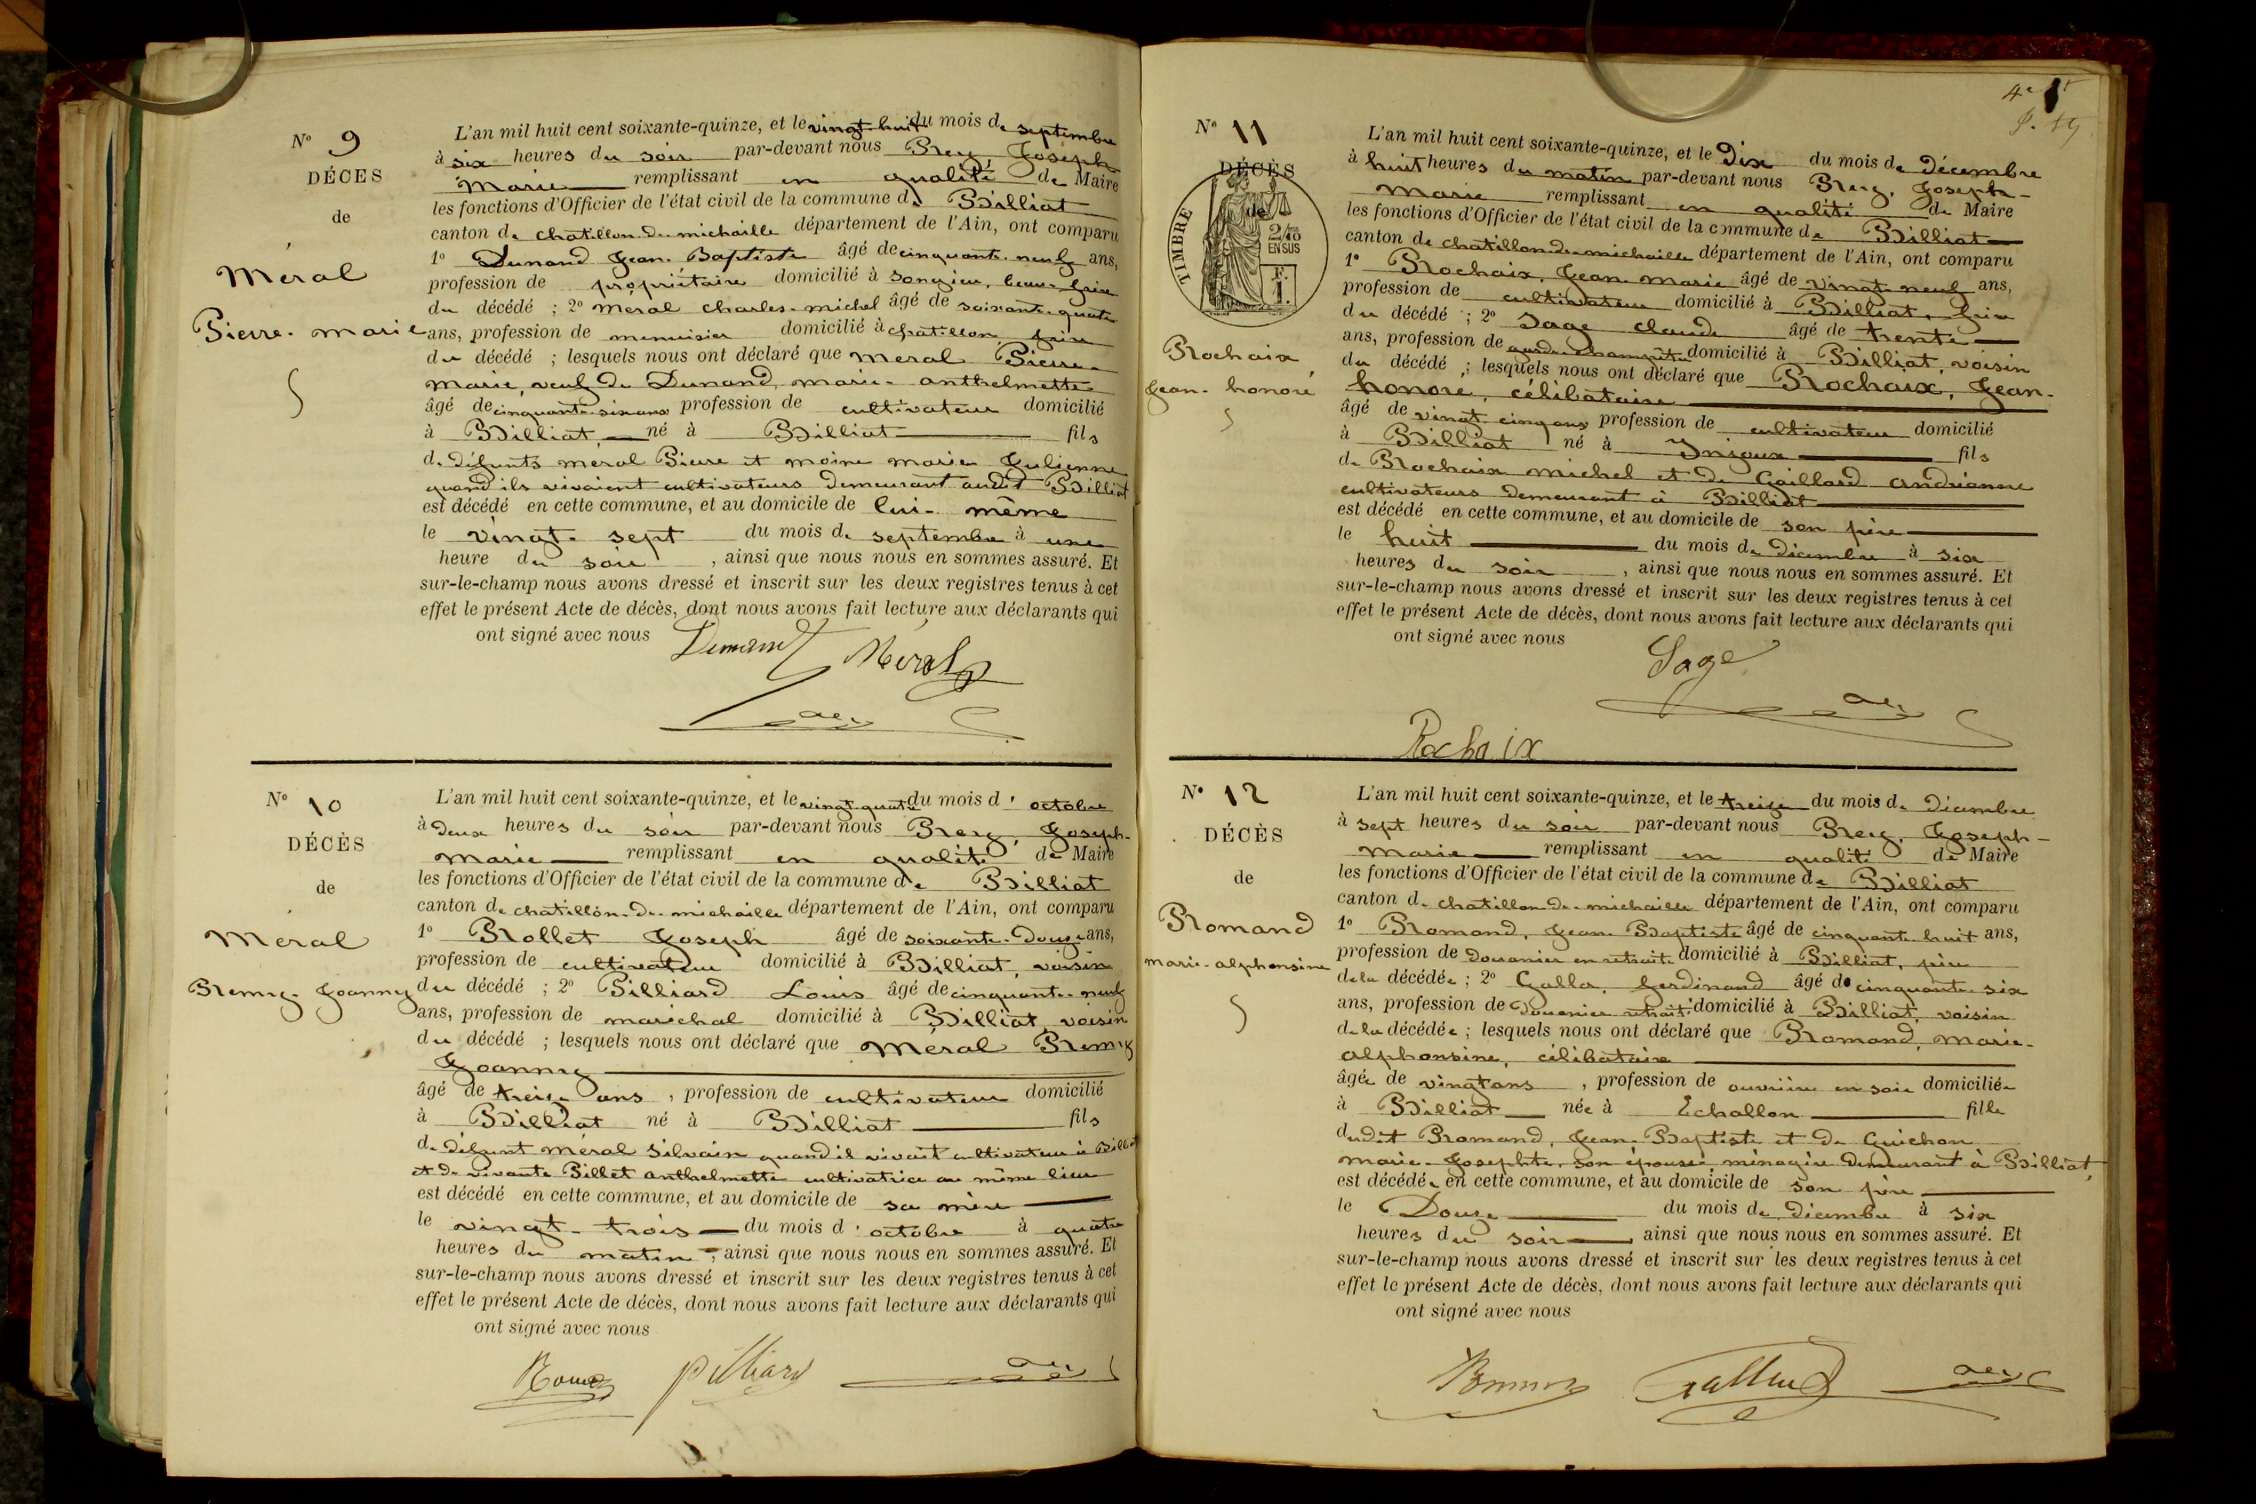 N° 9
DÉCES
de
Méral
Pierre-marie
L'an mil huit cent soixante-quinze, et le vingt-huit du mois de septembre
à six heures du soir par-devant nous Brey, Joseph
Marie remplissant en qualité de Maire
les fonctions d'Officier de l'état civil de la commune de Billiat
canton de chatillon-de-michaille département de l'Ain, ont comparu
1° Dunand Jean-Baptiste âgé de cinquante-neuf ans,
profession de propriétaire domicilié à Songieu, beau-frère
du décédé ; 2° Méral charles-michel âgé de soixante-quatre
ans, profession de menuisier domicilié à chatillon, frère
du décédé ; lesquels nous ont déclaré que Méral Pierre-
Marie, veuf de Dunand, marie-anthelmette
âgé de cinquante-six ans profession de cultivateur domicilié
à Billiat, né à Billiat fils
de défunts méral Pierre et moine marie-Julienne
quand ils vivaient cultivateurs demeurant audit Billiat
est décédé en cette commune, et au domicile de lui-même
le vingt-sept du mois de septembre à une
heure du soir , ainsi que nous nous en sommes assuré. Et
sur-le-champ nous avons dressé et inscrit sur les deux registres tenus à cet
effet le présent Acte de décès, dont nous avons fait lecture aux déclarants qui
ont signé avec nous
Dunand Méral
N° 10
DÉCÈS
de
Méral
Remy-Joanny
L'an mil huit cent soixante-quinze, et le vingt-quatre du mois d'octobre
à deux heures du soir par-devant nous Brey, Joseph-
Marie remplissant en qualité de Maire
les fonctions d'Officier de l'état civil de la commune de Billiat
canton de chatillon-de-michaille département de l'Ain, ont comparu
1° Rollet Joseph âgé de soixante-douze ans,
profession de cultivateur domicilié à Billiat, voisin
du décédé ; 2° Pilliard Louis âgé de cinquante-neuf
ans, profession de marechal domicilié à Billiat, voisin
du décédé ; lesquels nous ont déclaré que Méral Remy
Joanny
âgé de treize ans , profession de cultivateur domicilié
à Billiat né à Billiat fils
de défunt méral Silvain quand il vivait cultivateur à Billiat
et de vivante Billet anthelmette cultivatrice au même lieu
est décédé en cette commune, et au domicile de sa mère
le vingt-trois du mois d'octobre à quatre
heures du matin, ainsi que nous nous en sommes assuré. Et
sur-le-champ nous avons dressé et inscrit sur les deux registres tenus à cet
effet le présent Acte de décès, dont nous avons fait lecture aux déclarants qui
ont signé avec nous
pilliard
4e
N° 11
DÉCÈS
de
TIMBRE
2/10
EN SUS
Rochaix
Jean-honoré
L'an mil huit cent soixante-quinze, et le Dix du mois de décembre
à huit heures du matin par-devant nous Brey, Joseph-
Marie remplissant en qualité de Maire
les fonctions d'Officier de l'état civil de la commune de Billiat
canton de chatillon-de-michaille département de l'Ain, ont comparu
1° Rochaix, Jean-marie âgé de vingt-neuf ans,
profession de cultivateur domicilié à Billiat, frère
du décédé ; 2° Sage claude âgé de trente
ans, profession de garde-champêtre domicilié à Billiat, voisin
du décédé ; lesquels nous ont déclaré que Rochaix, Jean-
honoré, célibataire
âgé de vingt-cinq ans profession de cultivateur domicilié
à Billiat né à Injoux fils
de Rochaix michel et de Gaillard andréanne
cultivateurs demeurant à Billiat
est décédé en cette commune, et au domicile de son père
le huit du mois de décembre à six
heures du soir , ainsi que nous nous en sommes assuré. Et
sur-le-champ nous avons dressé et inscrit sur les deux registres tenus à cet
effet le présent Acte de décès, dont nous avons fait lecture aux déclarants qui
ont signé avec nous
Sage
Rochaix
N° 12
DÉCÈS
de
Romand
marie-alphonsine
L'an mil huit cent soixante-quinze, et le treize du mois de décembre
à sept heures du soir par-devant nous Brey, Joseph-
Marie remplissant en qualité de Maire
les fonctions d'Officier de l'état civil de la commune de Billiat
canton de chatillon-de-michaille département de l'Ain, ont comparu
1° Romand, Jean-Baptiste âgé de cinquante-huit ans,
profession de douanier en retraite domicilié à Billiat, père
de la décédée ; 2° Galla, ferdinand âgé de cinquante-six
ans, profession de douanier retraité domicilié à Billiat, voisin
de la décédée ; lesquels nous ont déclaré que Romand, marie-
alphonsine, célibataire
âgée de vingt ans , profession de ouvrière en soie domiciliée
à Billiat née à Echallon fille
dudit Romand, Jean-Baptiste et de Guichon
marie-Josephte, son épouse, ménagère demeurant à Billiat,
est décédée en cette commune, et au domicile de son père
le Douze du mois de décembre à six
heures du soir ainsi que nous nous en sommes assuré. Et
sur-le-champ nous avons dressé et inscrit sur les deux registres tenus à cet
effet le présent Acte de décès, dont nous avons fait lecture aux déclarants qui
ont signé avec nous